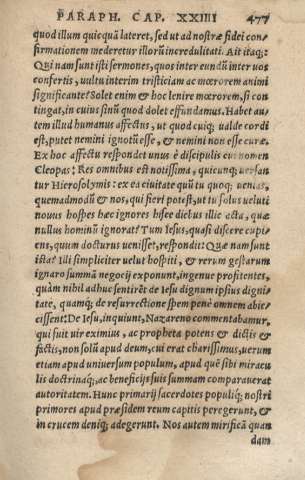 PARAPH. CAP. XXIIII 477
quod illum quicquā lateret, sed ut ad nostræ fidei con=
firmationem mederetur illorū incredulitati. Ait itaq;:
Qui nam sunt isti sermones, quos inter eundū inter uos
confertis, uultu interim tristiciam ac mœrorem animi
significante? Solet enim & hoc lenire mœrorem, si con
tingat, in cuius sinū quod dolet effundamus. Habet au=
tem illud humanus affectus, ut quod cuiq; ualde cordi
est, putet nemini ignotū esse, & nemini non esse curæ.
Ex hoc affectu respondet unus è discipulis cui nomen
Cleopas: Res omnibus est notissima, quicunq; uersan
tur Hierosolymis: ex ea ciuitate quū tu quoq; uenias,
quemadmodū & nos, qui fieri potest, ut tu solus ueluti
nouus hospes hæc ignores hisce diebus illic acta, quæ
nullus hominū ignorat? Tum Iesus, quasi discere cupi=
ens, quum docturus uenisset, respondit: Quæ nam sunt
ista? Illi simpliciter uelut hospiti, & rerum gestarum
ignaro summā negocij exponunt, ingenue profitentes,
quàm nihil adhuc senserīt de Iesu dignum ipsius digni=
tate, quamq; de resurrectione spem penè omnem abie=
cissent: De Iesu, inquiunt, Nazareno commentabamur,
qui fuit uir eximius, ac propheta potens & dictis &
factis, non solū apud deum, cui erat charissimus, uerum
etiam apud uniuersum populum, apud quē sibi miracu
lis doctrinaq;, ac beneficijs suis summam comparauerat
autoritatem. Hunc primarij sacerdotes populiq; nostri
primores apud præsidem reum capitis peregerunt, &
in crucem deniq; adegerunt. Nos autem mirificā quan
dam